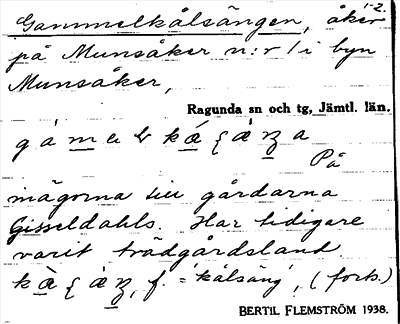 1-2.
Gammelkålsängen, åker
på Munsåker n:r 1 i byn
Munsåker,
Ragunda sn och tg, Jämtl. län.
På
mägorna till gårdarna
Gisseldahls. Har tidigare
varit trädgårdsland.
f. = 'kålsäng', (forts.)
BERTIL FLEMSTRÖM 1938.